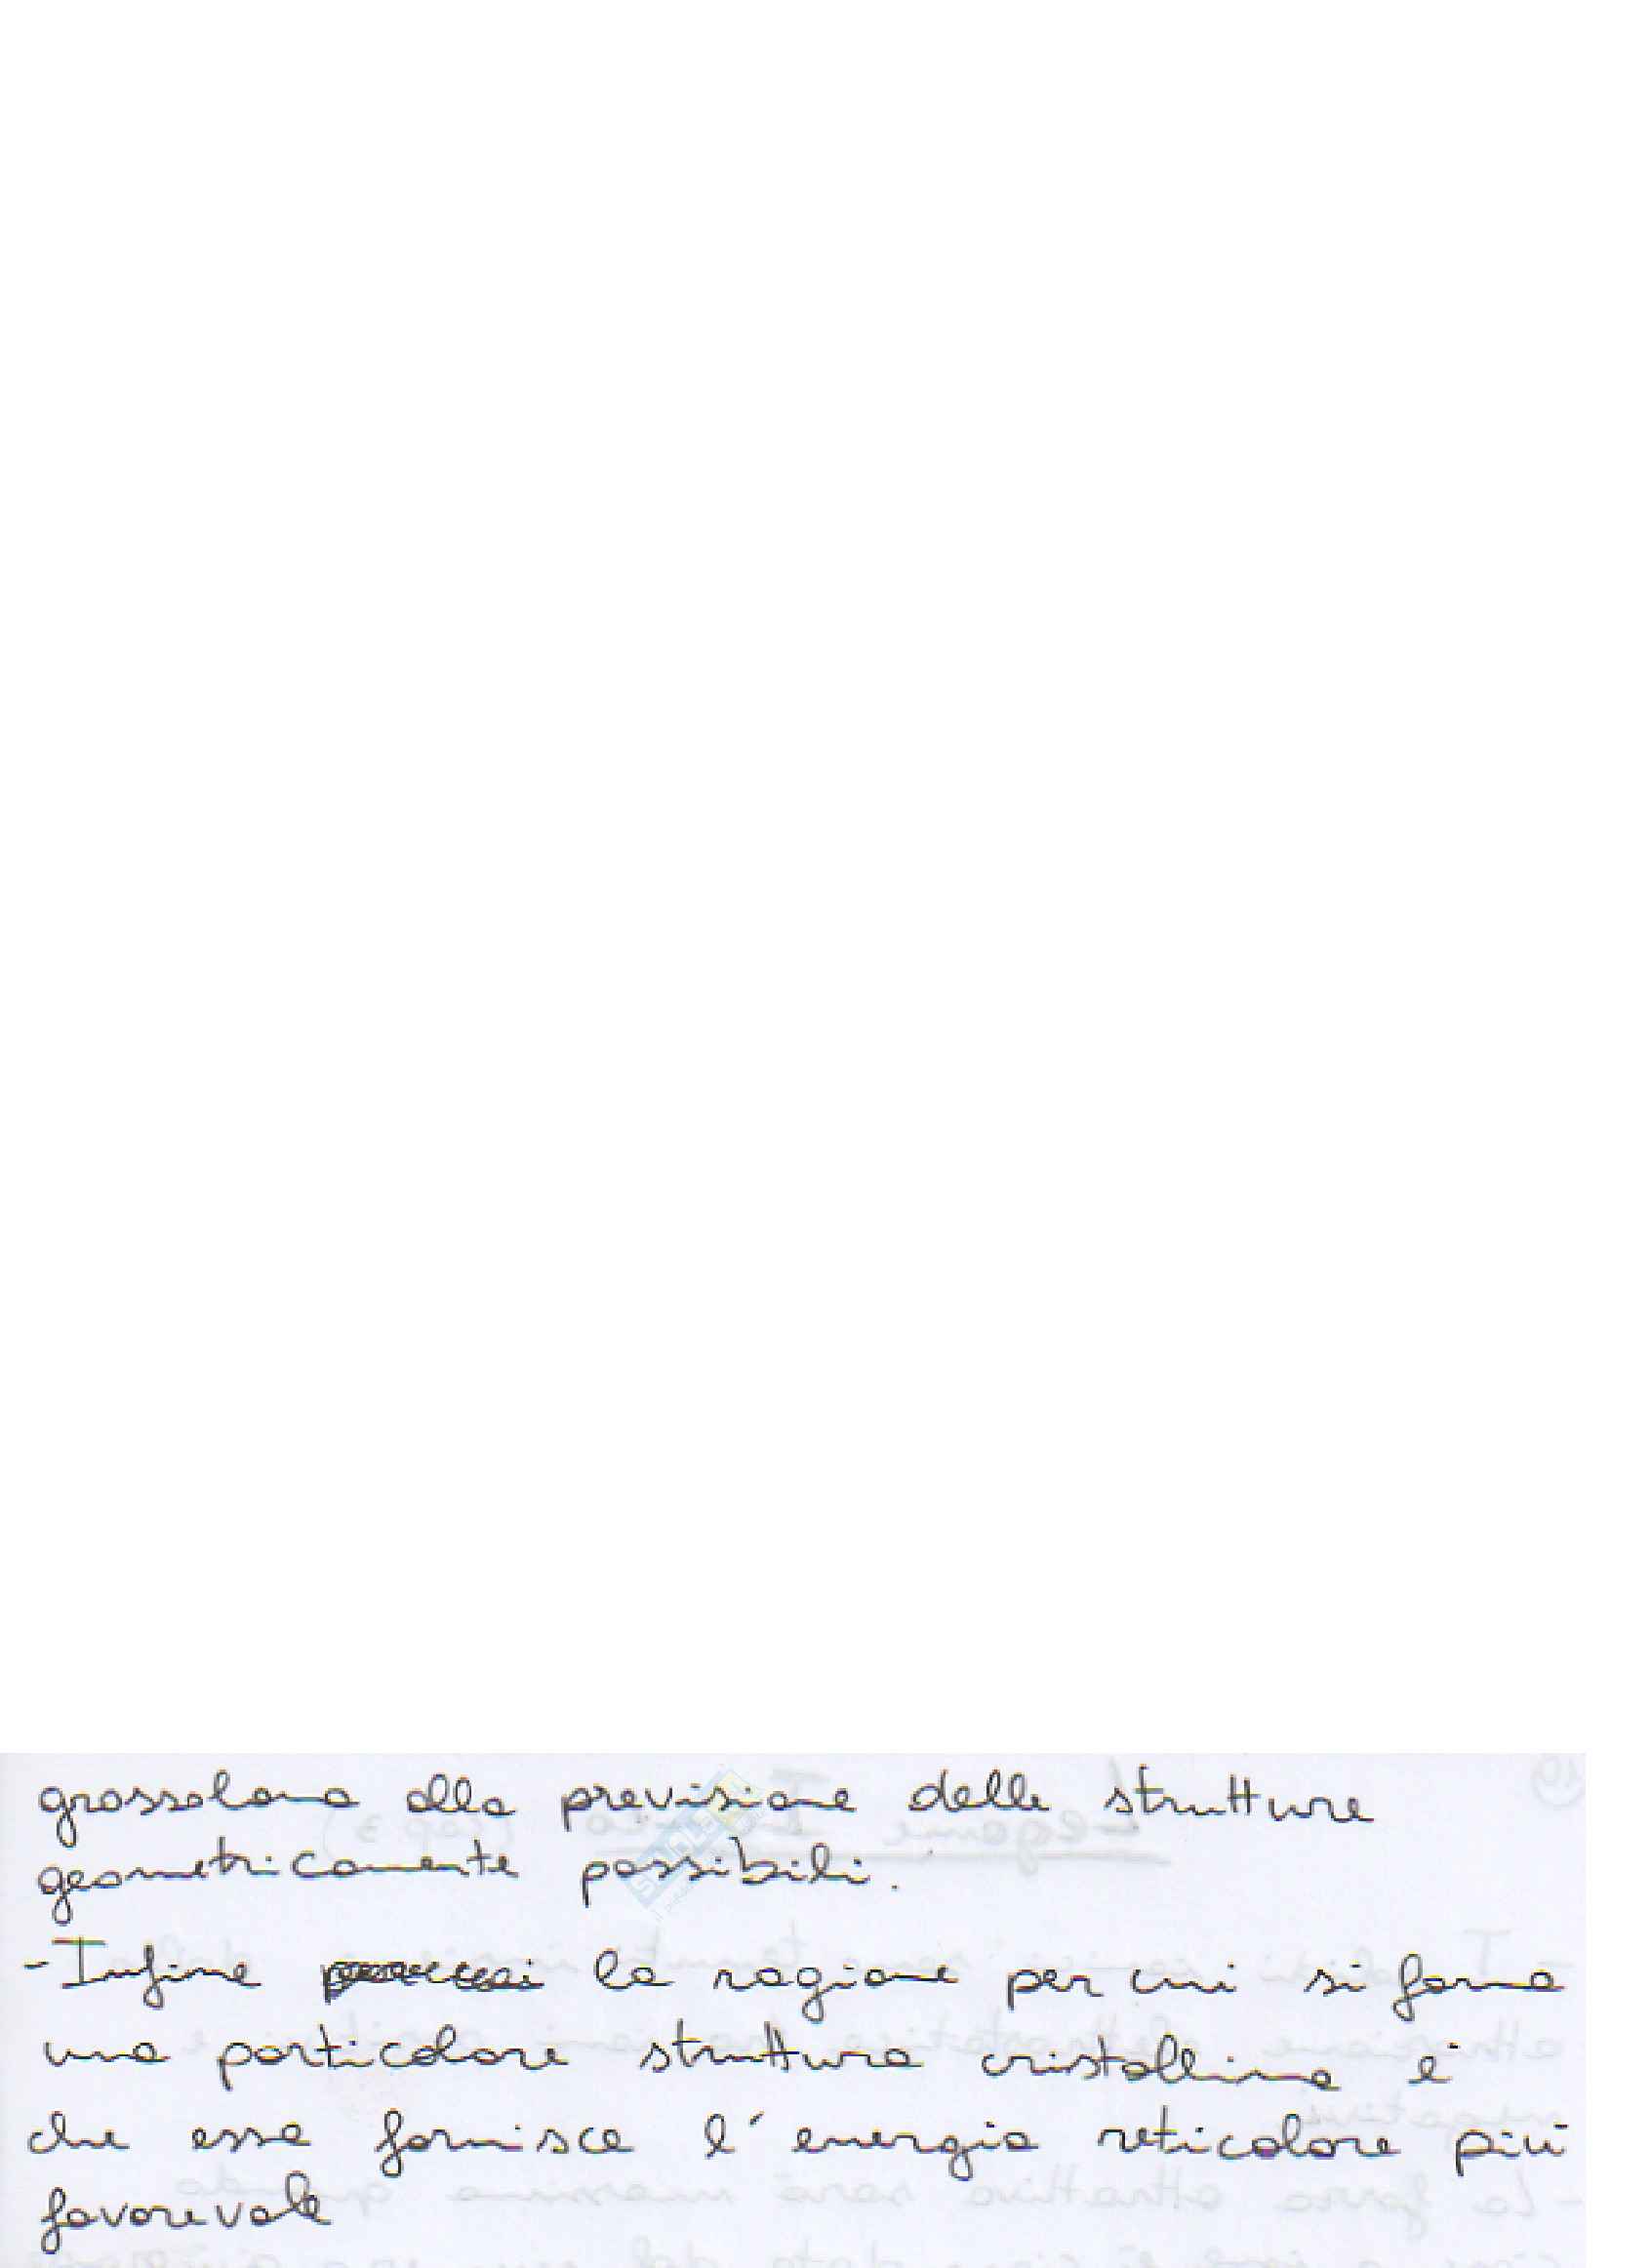 grossolana alla previsione delle strutture
geometricamente possibili.
-Infine la ragione per cui si forma
una particolare struttura cristallina è
che essa fornisce l'energia reticolare più
favorevole